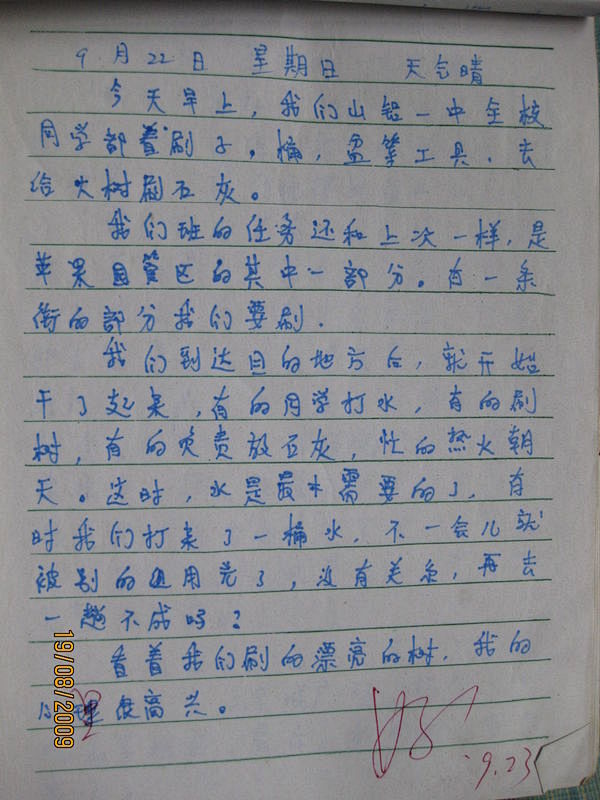 9月22日 星期日 天气晴
今天早上，我们山铝一中全校
同学部着刷子。桶，盆等工具，去
给大树刷石灰。
我们班的任务还和上次一样，是
苹果园管区的其中一部分。有一条
街的部分我们要刷.
我们到达目的地方后，就开始
干了起来，有的同学打水，有的刷
树，有的负责放石灰，忙的热火朝
天。这时，水是最需要的了，有
时我们打来了一桶水，不一会儿就
被别的组用完了，没有关系，再去
一趟不成吗？
看着我们刷的漂亮的树，我的
心理很高兴。
好
9.23
19/08/2009